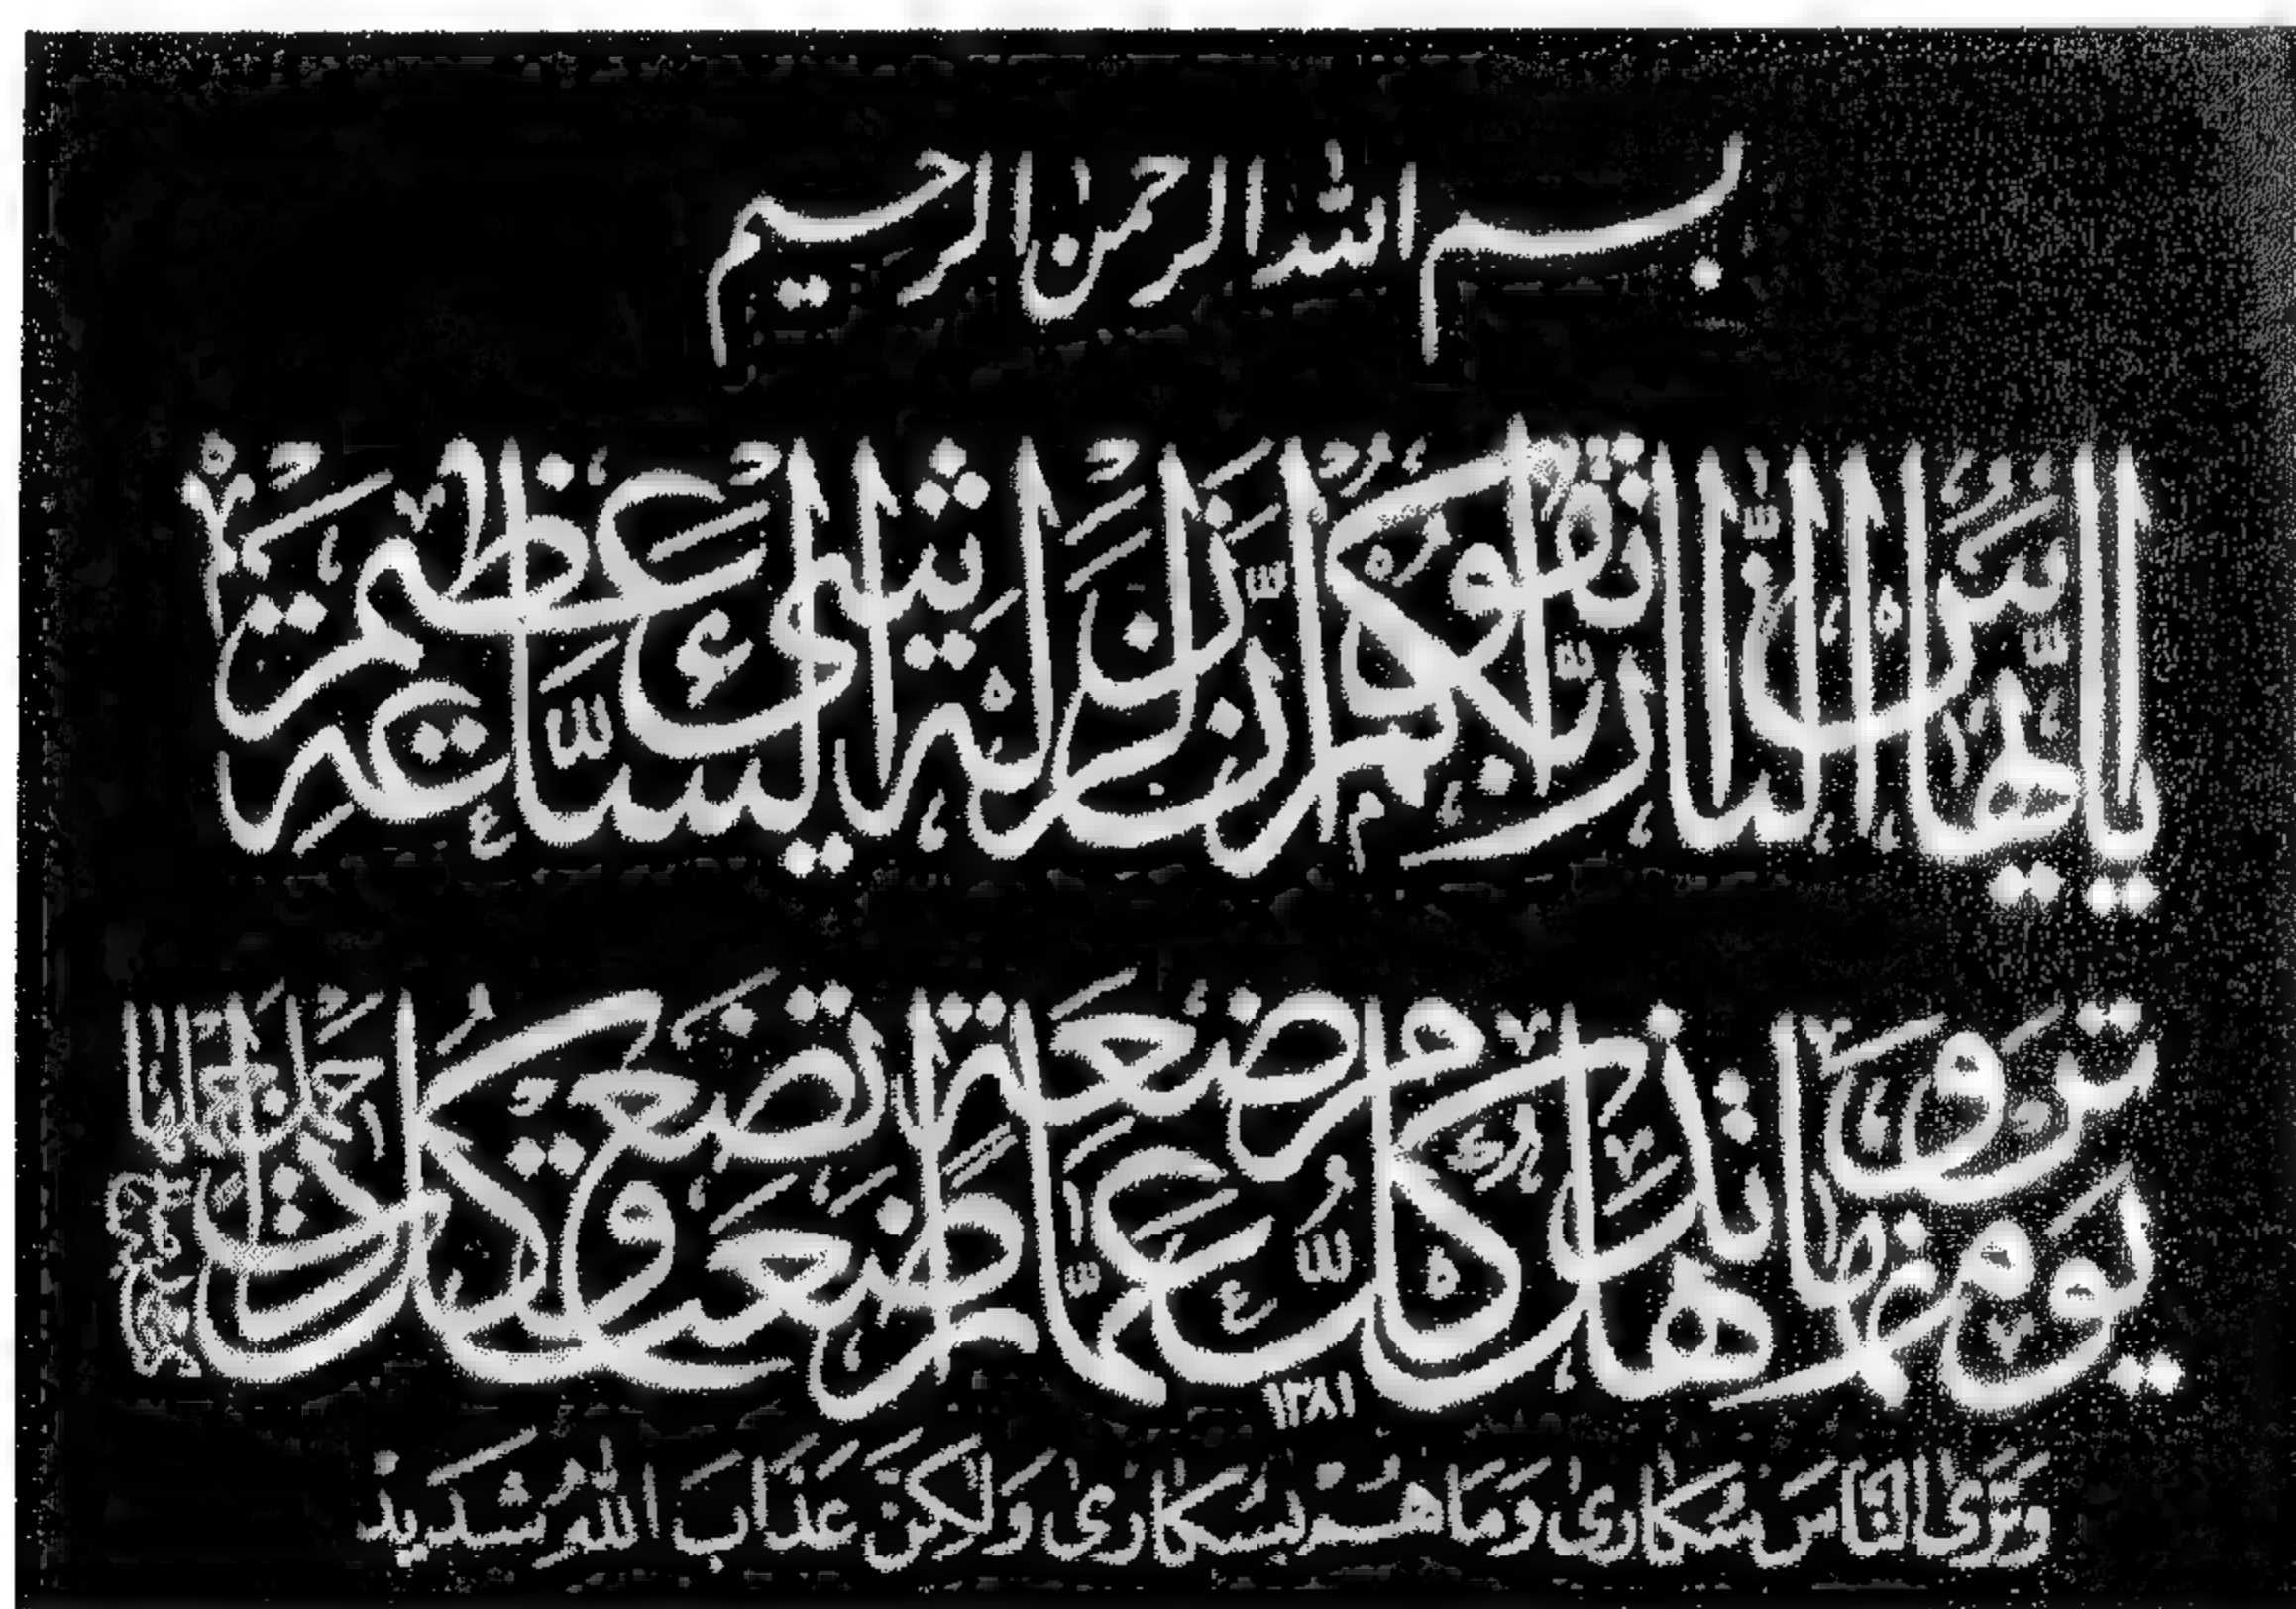 بسم الله الرحمن الرحيم
يا أيها الناس اتقوا ربكم إن زلزلة الساعة شيء عظيم
يوم ترونها تذهل كل مرضعة عما أرضعت وتضع كل ذات حمل حملها
١٣٨١
وَتَرَى النَّاسَ سُكَارَى وَمَا هُمْ بِسُكَارَى وَلَكِنَّ عَذَابَ اللَّهِ شَدِيدٌ